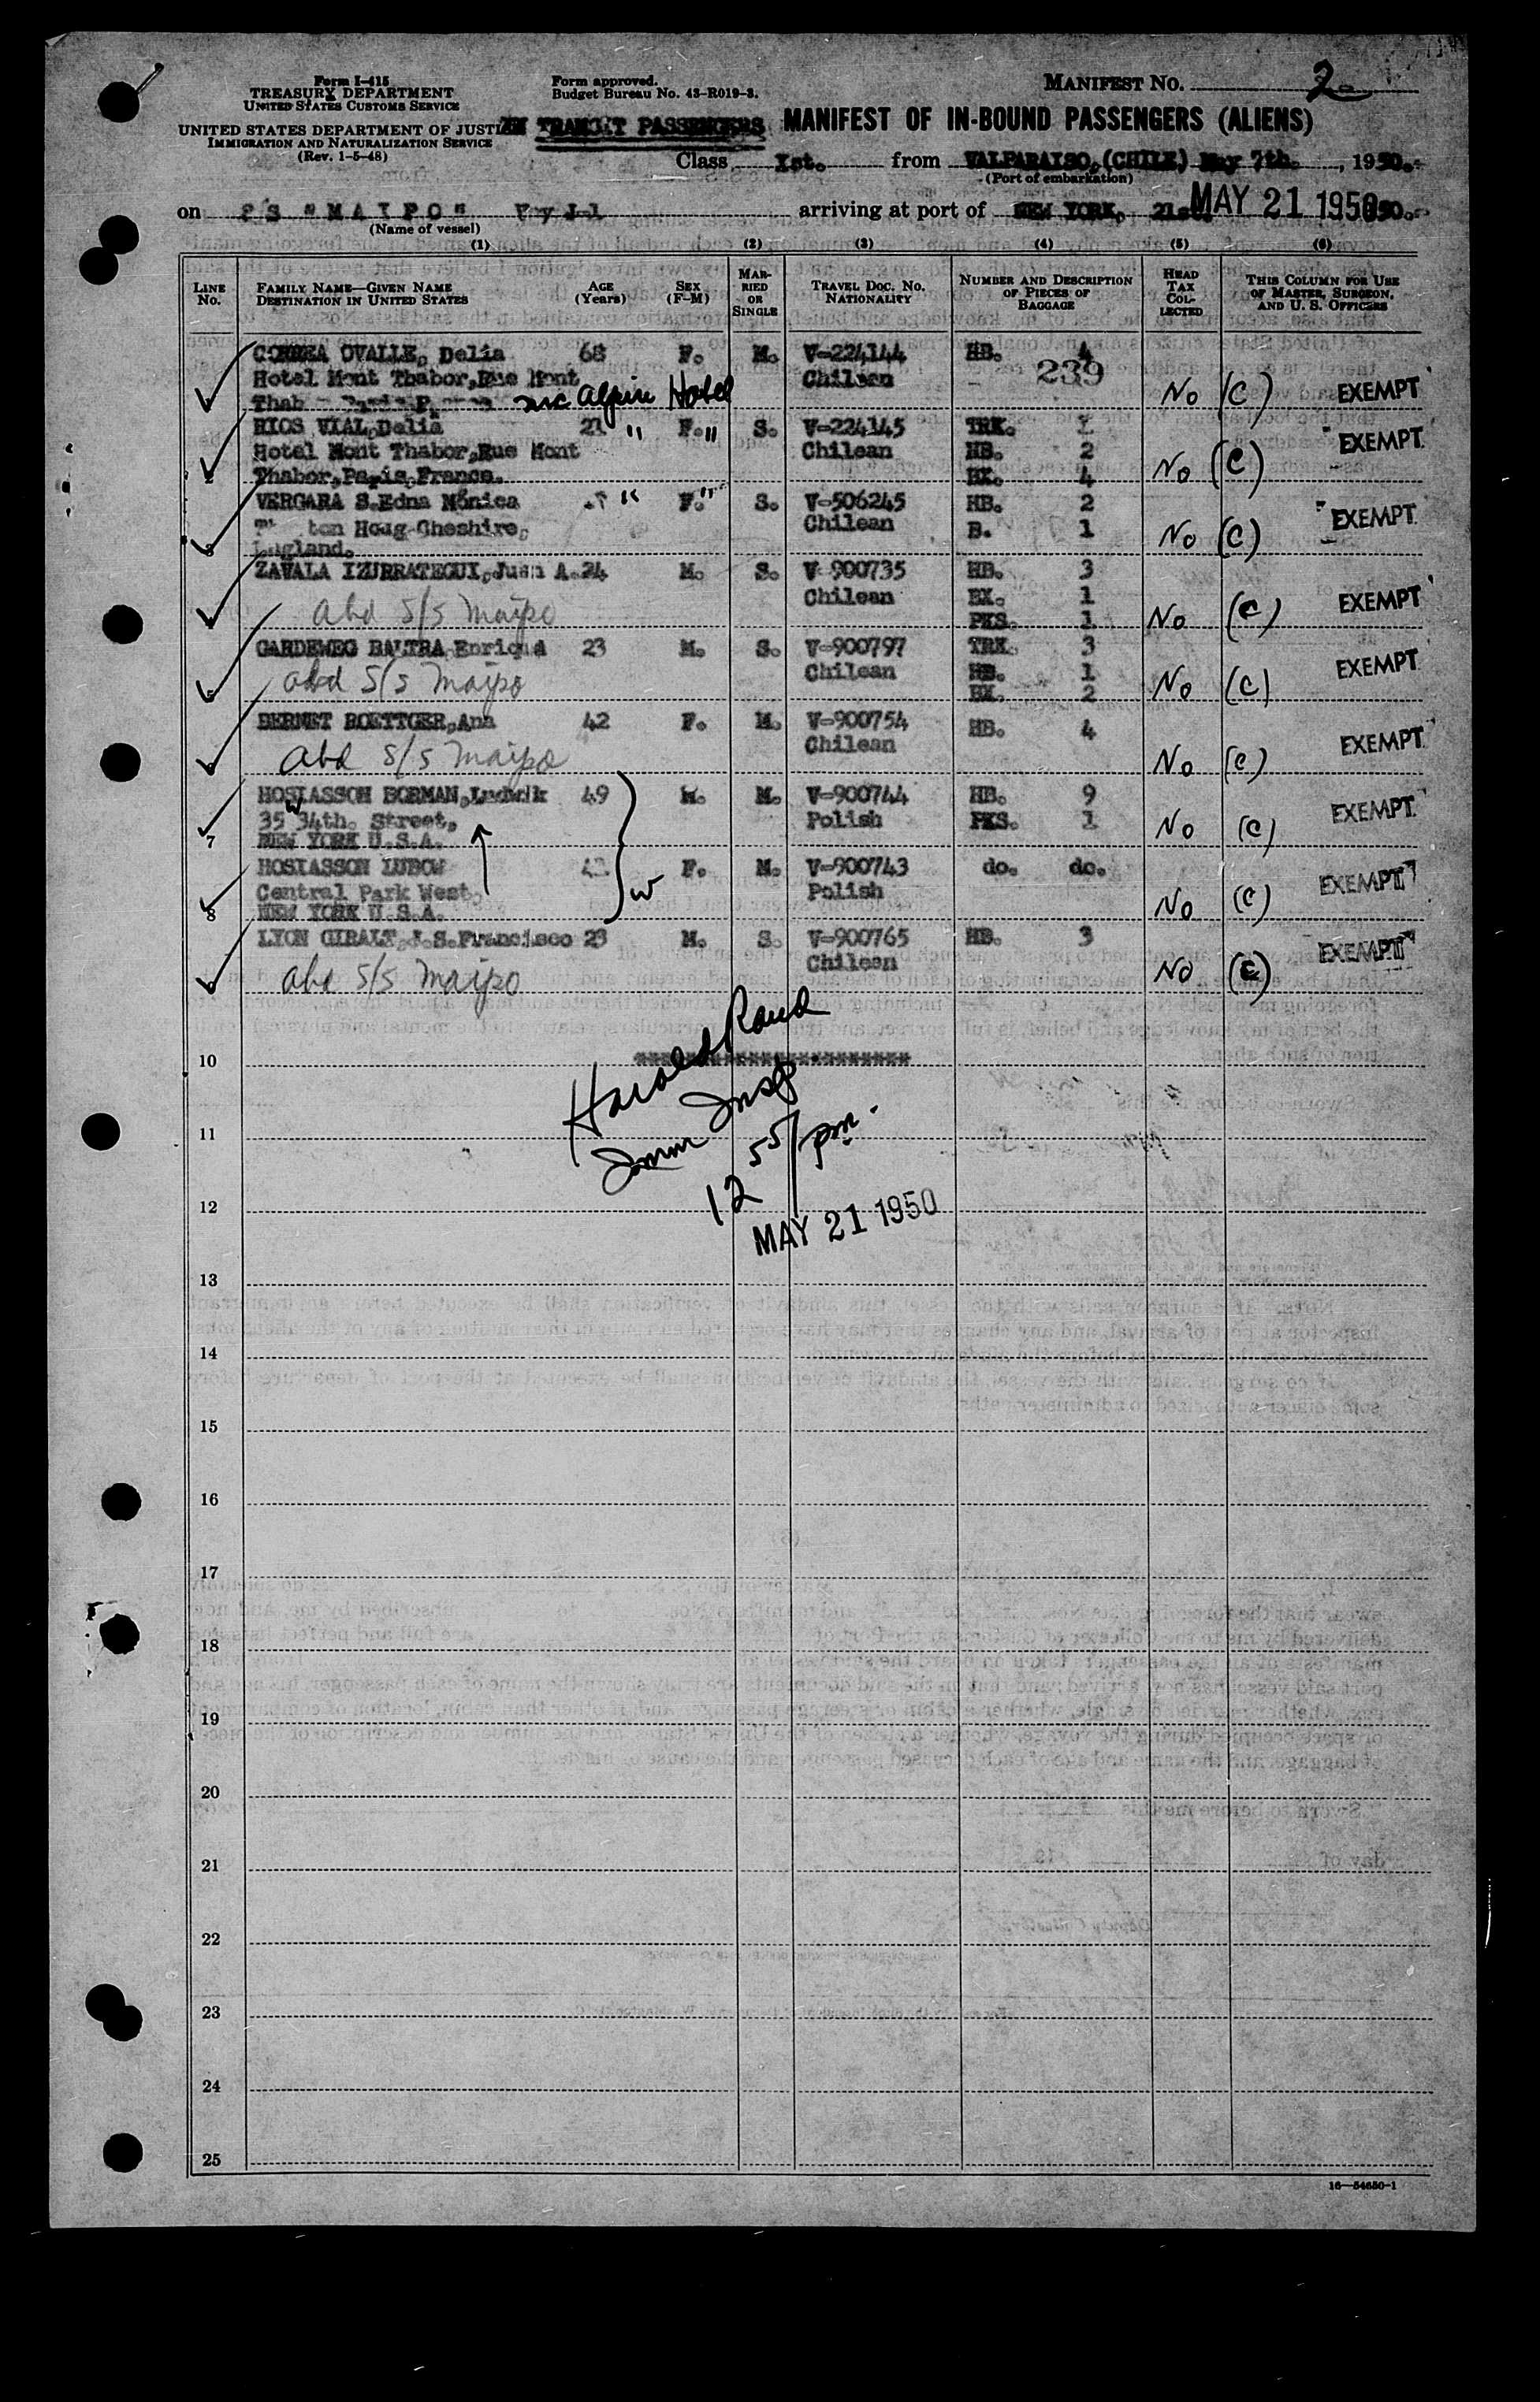 Form I-415
TREASURY DEPARTMENT
UNITED STATES CUSTOMS SERVICE
UNITED STATES DEPARTMENT OF JUSTICE
IMMIGRATION AND NATURALIZATION SERVICE
(Rev. 1-5-48)
Form approved.
Budget Bureau No. 43-R019-3.
MANIFEST No. 2
IN TRANSIT PASSENGERS MANIFEST OF IN-BOUND PASSENGERS (ALIENS)
Class Ist. from VALPARAISO,(CHILE) May 7th. , 1950.
(Port of embarkation)
on "MAIPO" arriving at port of NEW YORK, 21st. MAY 21 1950
(Name of vessel)
(1) (2) (3) (4) (5) (6)
LINE No. FAMILY NAME—GIVEN NAME DESTINATION IN UNITED STATES AGE (Years) SEX (F-M) MARRIED OR SINGLE TRAVEL DOC. No. NATIONALITY NUMBER AND DESCRIPTION OF PIECES OF BAGGAGE HEAD TAX COLLECTED THIS COLUMN FOR USE OF MASTER, SURGEON, AND U. S. OFFICERS
CORREA OVALLE, Delia 68 F. M. V-224144 HB. 4
Hotel Mont Thabor,Rue Mont Chilean 239 No (C) EXEMPT
Alpin Hotel
RIOS VIAL,Delia 21 " F. " S. V-224145 TRK. 1 EXEMPT
Hotel Mont Thabor,Rue Mont Chilean HB. 2
Thabor,Paris,France. BX. 4 No (C)
VERGARA S.Edna Mónica " F. " S. V-506245 HB. 2 EXEMPT
Houg-Cheshire, Chilean B. 1 No (C)
England.
ZAVALA IZURRATEGUI,Juan A. 24 M. S. V-900735 HB. 3
abd S/S Maipo Chilean BX. 1 EXEMPT
PKS. 1 No (C)
GARDEWEG BALTRA,Enrique 23 M. S. V-900797 TRK. 3
abd S/S Maipo Chilean HB. 1 EXEMPT
BX. 2 No (C)
BERNET ROETTGER,Ana 42 F. M. V-900754 HB. 4
abd S/S Maipo Chilean No (C) EXEMPT
HOSIASSON BORMAN,Ludwik 49 M. M. V-900744 HB. 9
35 W 34th. Street, Polish PKS. 1 No (C) EXEMPT
7 NEW YORK U.S.A.
HOSIASSON LUBOW F. M. V-900743 do. do.
Central Park West, W Polish EXEMPT
8 NEW YORK U.S.A. No (C)
LYON GIRALT,J.S.Francisco 23 M. S. V-900765 HB. 3
abd S/S Maipo Chilean No (C) EXEMPT
Harold Rand
10 **********************
Imm Insp
11
12 55/pm.
12
MAY 21 1950
13
14
15
16
17
18
19
20
21
22
23
24
25
16—54650-1